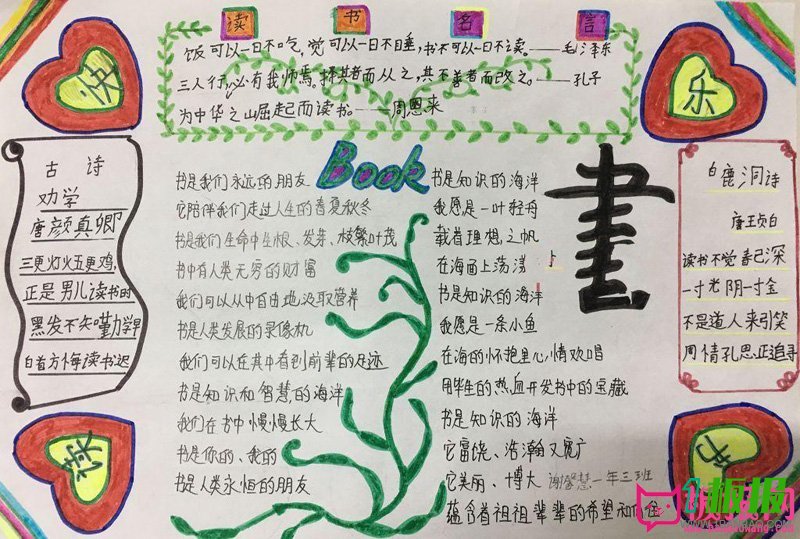 读书名言
饭可以一日不吃,觉可以一日不睡,书不可以一日不读。——毛泽东
三人行,必有我师焉。择其善者而从之,其不善者而改之。——孔子
为中华之山屈起而读书。——周恩来
快
乐
古诗
劝学
唐颜真卿
三更灯火五更鸡,
正是男儿读书时
黑发不知勤学早
白首方悔读书迟
Book
书是我们永远的朋友
它陪伴我们走过人生的春夏秋冬
书是我们生命中生根、发芽、枝繁叶茂
书中有人类无穷的财富
我们可以从中自由地汲取营养
书是人类发展的录像机
我们可以在其中看到前辈的足迹
书是知识和智慧的海洋
我们在书中慢慢长大
书是你的、我的
书是人类永恒的朋友
书是知识的海洋
我愿是一叶轻舟
载着理想之帆
在海面上荡漾
书是知识的海洋
我愿是一条小鱼
在海的怀抱里心情欢唱
用毕生的热血开发书中的宝藏
书是知识的海洋
它富饶、浩瀚又宽广
它美丽、博大
一年三班
蕴含着祖祖辈辈的希望和
書
白鹿洞诗
唐王贞白
读书不觉春已深
一寸光阴一寸金
不是道人来引笑
周情孔思正追寻
读
书
板报